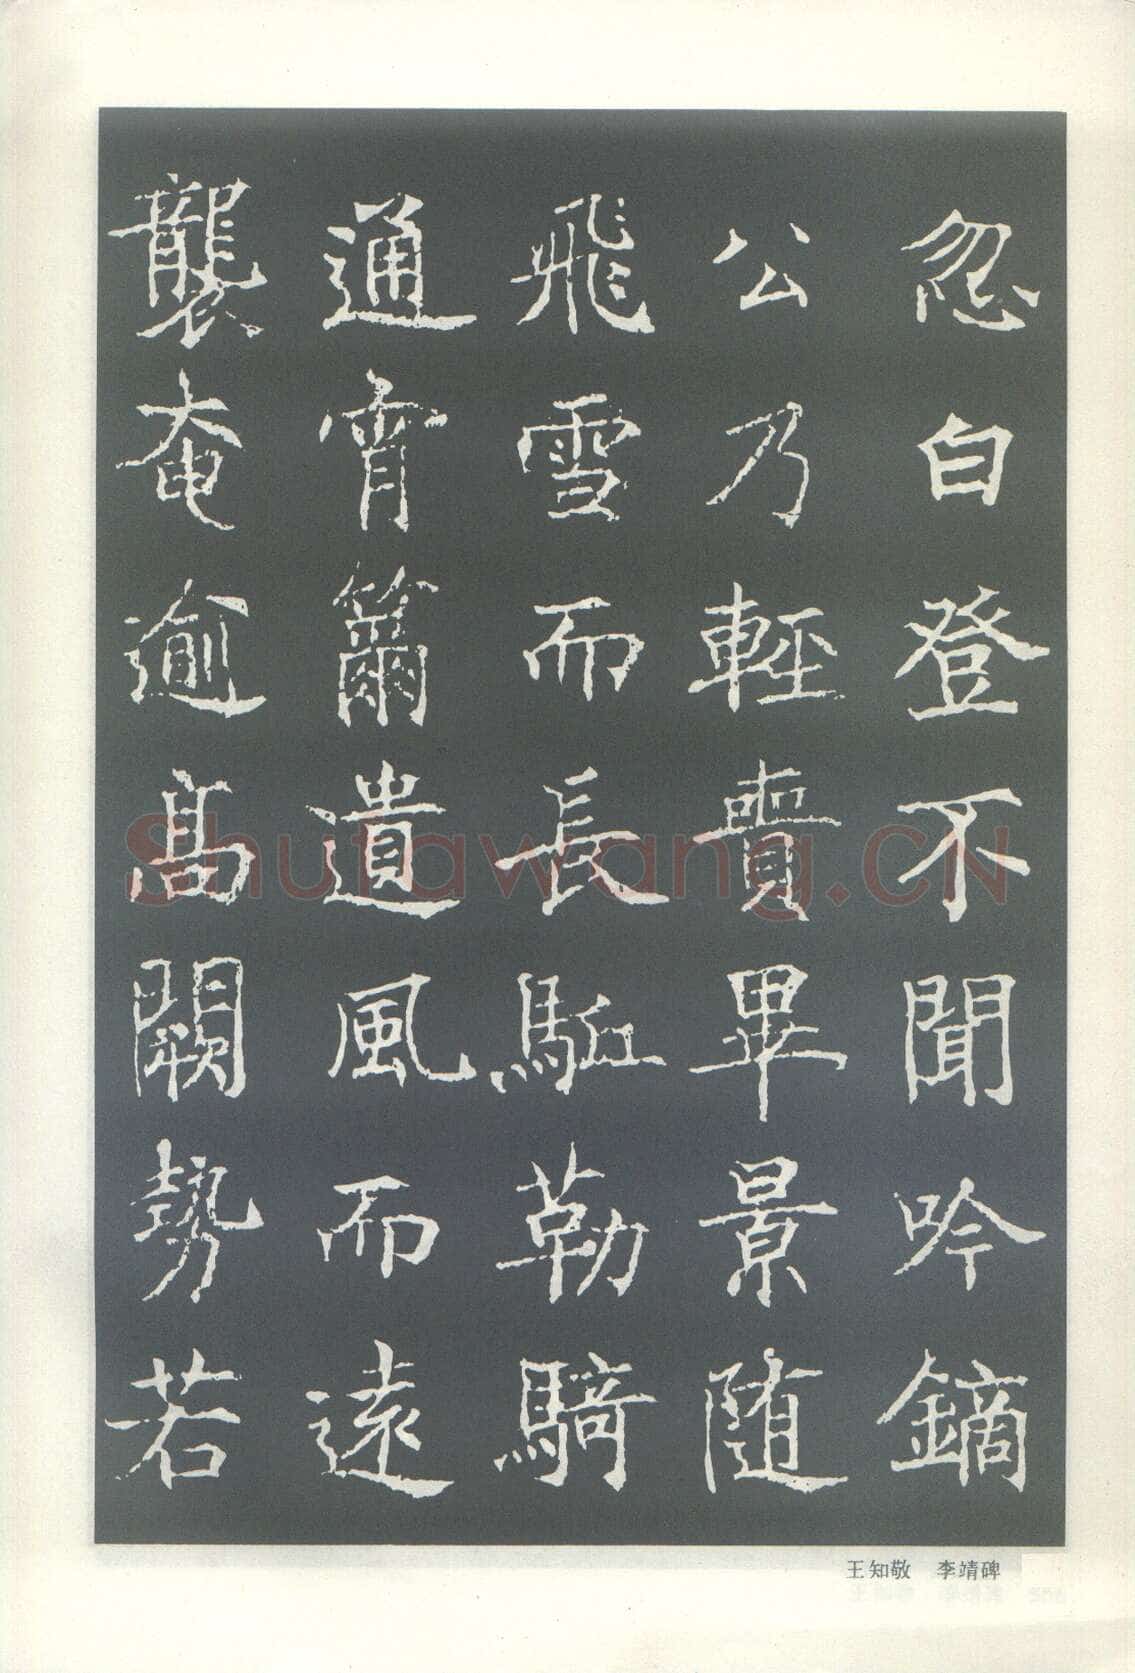 忽白登不聞吟鏑
公乃輕賷畢景随
飛雪而長駈勒騎
通宵籋遺風而遠
襲奄逾高闕勢若
Shufawang.CN
王知敬 李靖碑